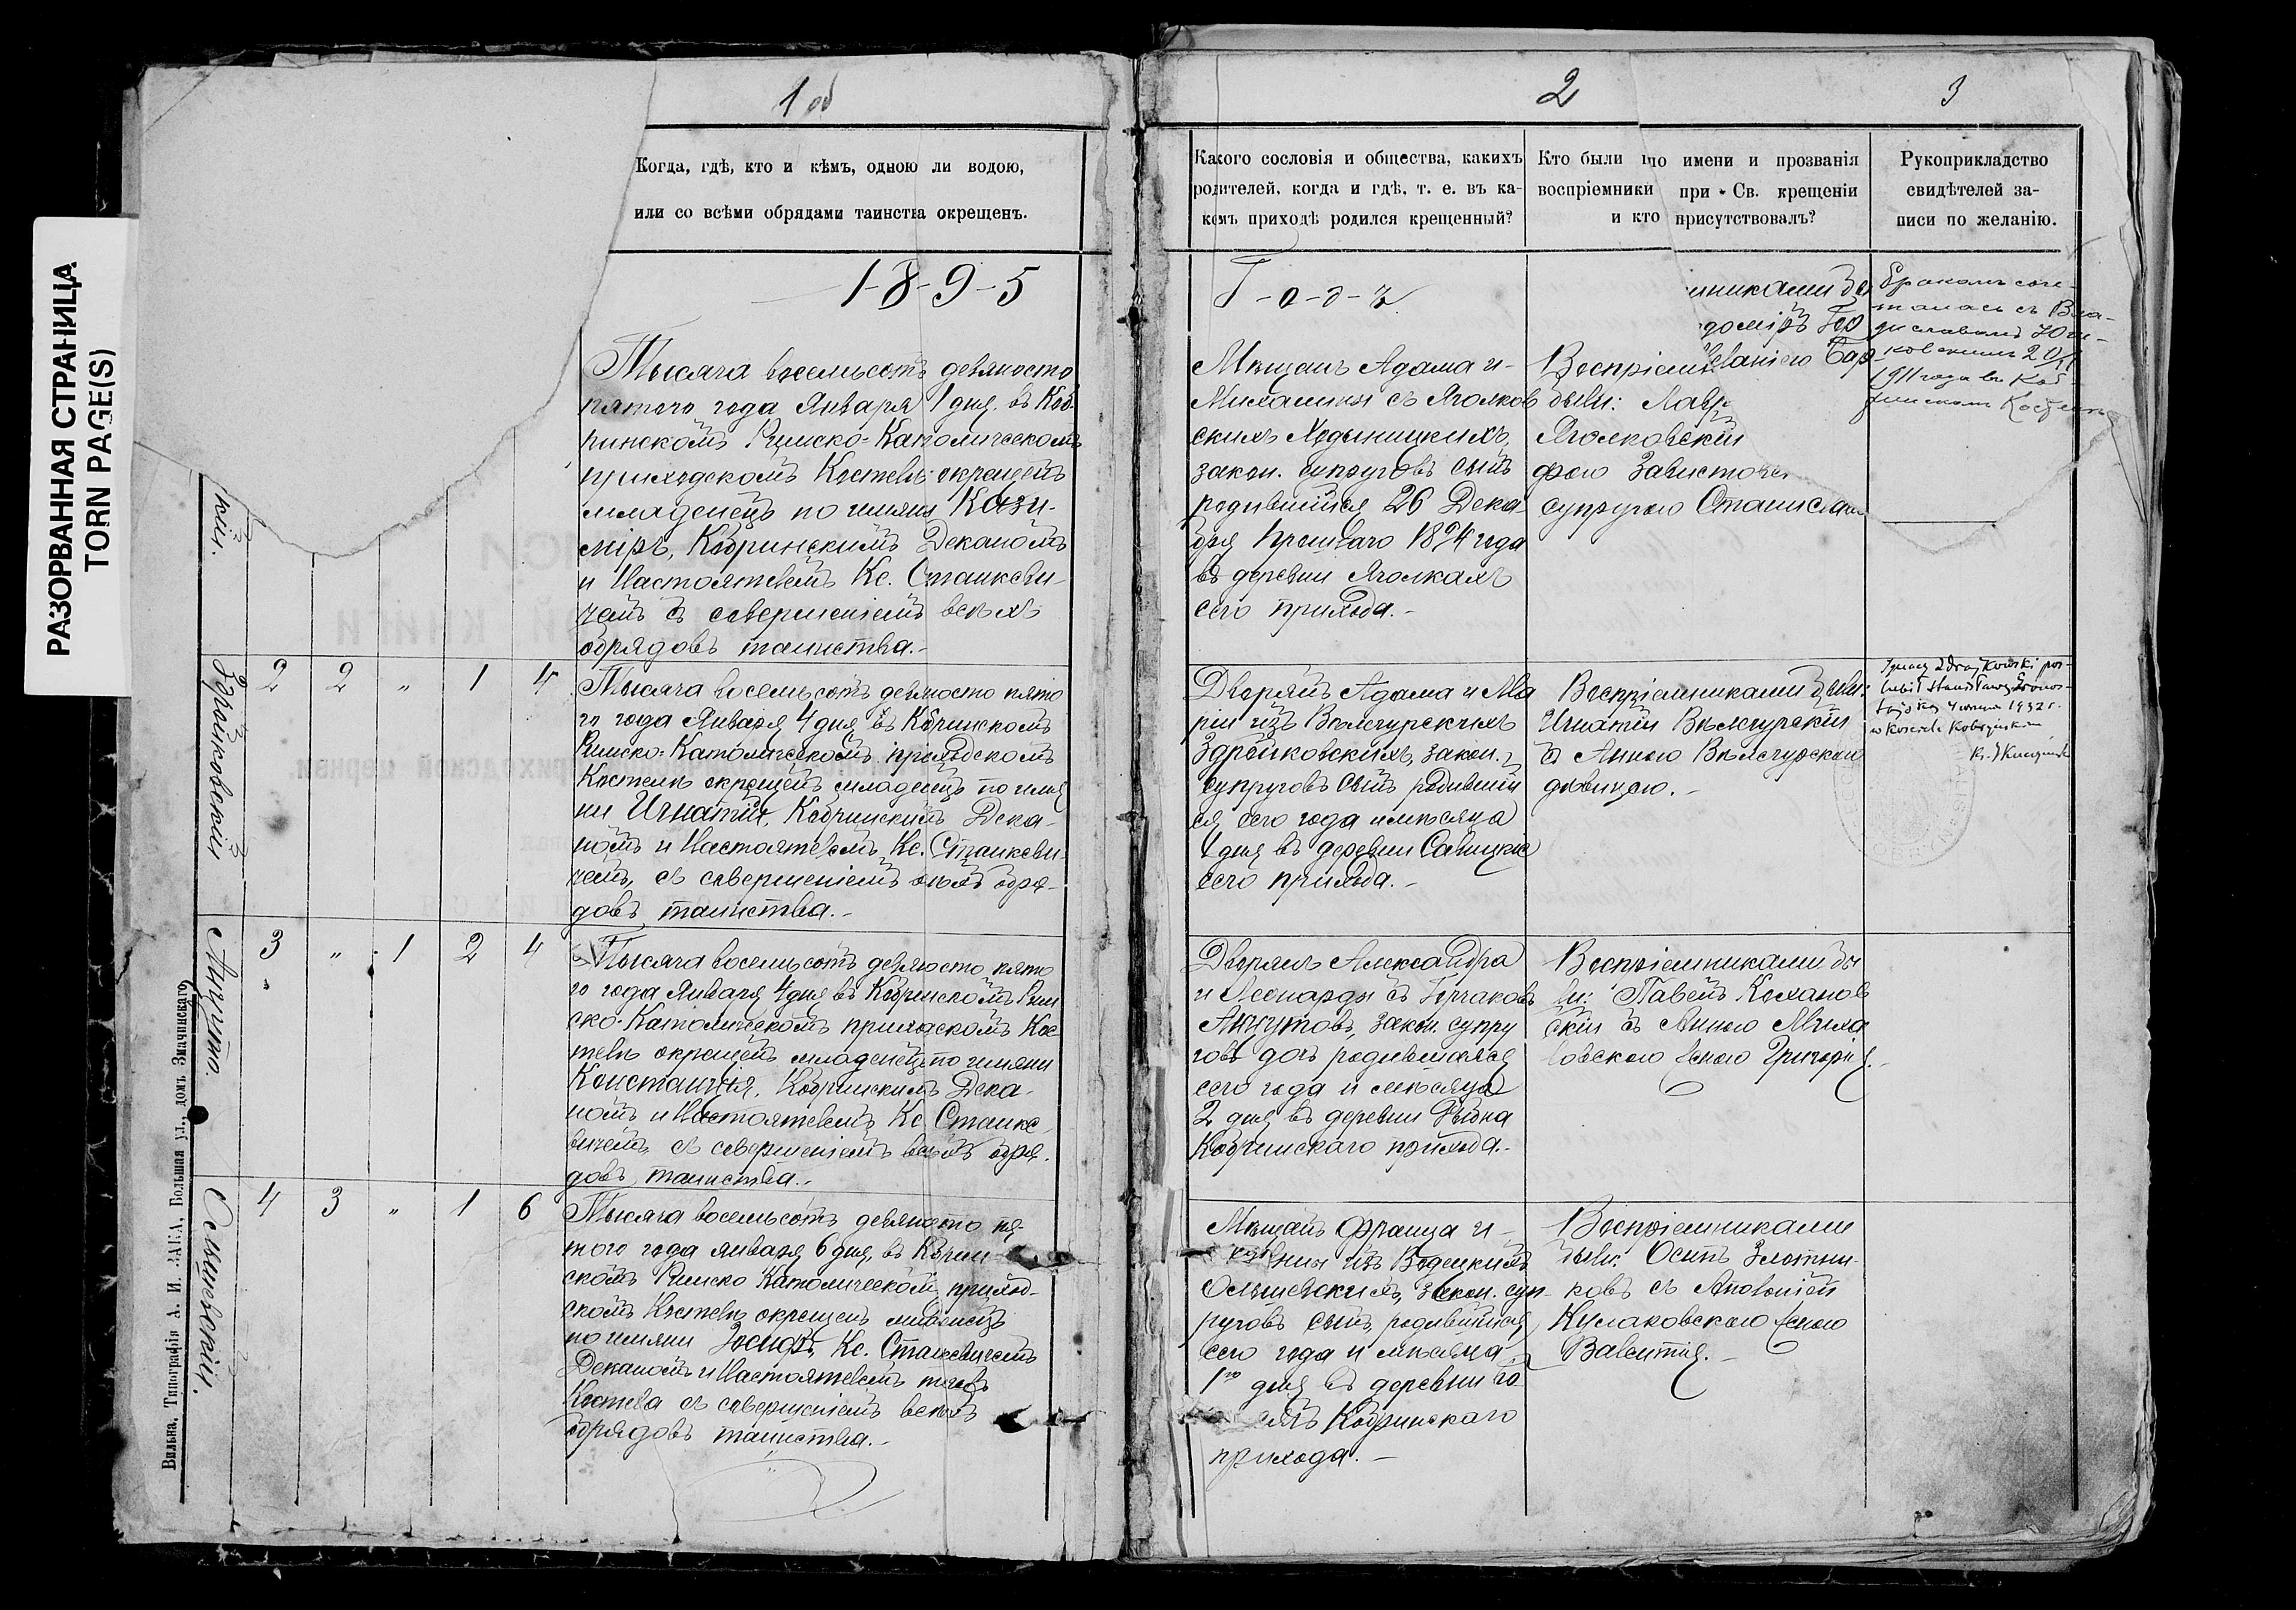 РАЗОРВАННАЯ СТРАНИЦА
TORN PAGE(S)
1 об
Когда, гдѣ, кто и кѣмъ, одною ли водою,
или со всѣми обрядами таинства окрещенъ.
1-8-9-5
кій.
Тысяча восемьсотъ девяносто
пятого года Января 1 дня въ Коб-
ринскомъ Римско-Католическомъ
приходскомъ Костелѣ окрещенъ
младенецъ по имяни Кази-
міръ, Кобринскимъ Деканомъ
и Настоятелемъ Кс. Станкеви-
чемъ съ совершеніемъ всѣхъ
обрядовъ таинства.-
Здрайковскій
2 2 " 1 4
Тысяча восемьсотъ девяносто пято
го года Января 4 дня въ Кобринскомъ
Римско-Католическомъ приходскомъ
Костелѣ окрещенъ младенецъ по имя
ни Игнатій, Кобринскимъ Дека-
номъ и Настоятелемъ Кс. Станкеви-
чемъ, съ совершеніемъ всѣхъ обря-
довъ таинства.-
Анцуто.
3 " 1 2 4
Тысяча восемьсотъ девяносто пято
го года Января 4 дня въ Кобринскомъ Рим
ско-Католическомъ приходскомъ Кос
телѣ окрещенъ младенецъ по имяни
Констанція, Кобринскимъ Дека-
номъ и Настоятелемъ Кс. Станке
вичемъ, съ совершеніемъ всѣхъ обря-
довъ таинства.-
Ольшевскій.
4 3 " 1 6
Тысяча восемьсотъ девяносто пя-
того года Января 6 дня, въ Кобрин-
скомъ Римско Католическомъ приход-
скомъ Костелѣ окрещенъ младенецъ
по имяни Іосифъ, Кс. Станкевичемъ
Деканомъ и Настоятелемъ того
Костела съ совершеніемъ всѣхъ
обрядовъ таинства.-
Вильна, Типографія А. И. ЗАКА, Большая ул., домъ Значинскаго
2
3
Какого сословія и общества, какихъ
родителей, когда и гдѣ, т. е. въ ка-
комъ приходѣ родился крещенный?
Кто были по имени и прозванія
воспріемники при Св. крещеніи
и кто присутствовалъ?
Рукоприкладство
свидѣтелей за-
писи по желанію.
Г-о-д-ъ
Мѣщанъ Адама и-
Михалины съ Яголков
скихъ Ходыницкихъ,
закон. супруговъ сынъ
родившійся 26 Дека-
бря прошлаго 1894 года
въ деревни Яголкахъ
сего прихода.-
Воспріем
были: Лавр
Яголковскій
супругою Станислав
никами
Бракомъ соче-
талась съ Вла-
диславомъ
1911 года въ Коб-
ринскомъ Костелѣ
Дворянъ Адама и Ма
ріи изъ Вѣлегурскихъ
Здрайковскихъ, закон.
супруговъ сынъ родившій
ся сего года и мѣсяца
1 дня въ деревни Савицкіе
сего прихода.-
Воспріемниками были:
Игнатій Вѣлегурскій
съ Анною Вѣлегурскою
дѣвицею.-
Ignacy Zdrajkowski pos-
lubił Stanisławę
1932 r.
w Kosciele Kobryńskim
Дворянъ Александра
и Леонарды съ Горчаковъ
Анцутовъ, закон. супру
говъ дочь родившаяся
сего года и мѣсяца
2 дня въ деревни Рыбна
Кобринскаго прихода.-
Воспріемниками бы
ли: Павелъ Коханов
скій съ Анною Миха
ловскою женою Григорія.-
Мѣщанъ Франца и-
изъ Водецкихъ
Ольшевскихъ, закон. суп-
руговъ сынъ, родившійся
сего года и мѣсяца
1го дня въ деревни
Кобринскаго
прихода.-
Воспріемниками
были: Осипъ Злотни-
ковъ съ Аполоніей
Кулаковскою женою
Валентія.-